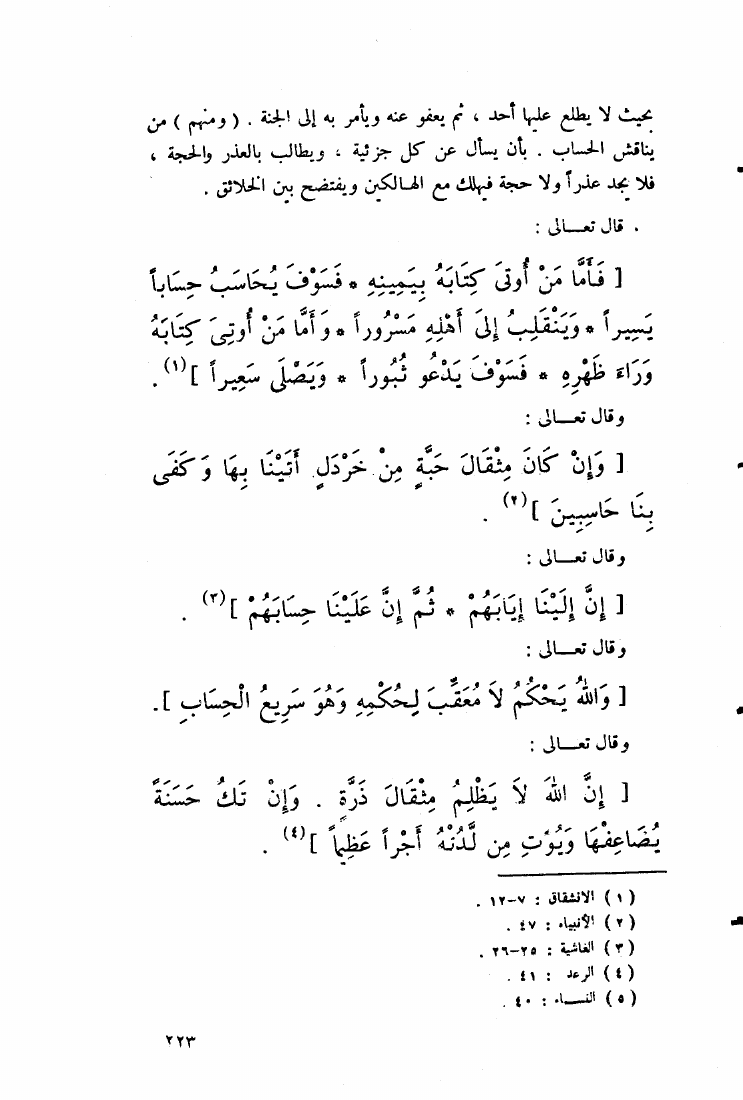 بحيث لا يطلع عليها أحد ، ثم يعفو عنه ويأمر به إلى الجنة . ( ومنهم ) من
يناقش الحساب . بأن يسأل عن كل جزئية ، ويطالب بالعذر والحجة ،
فلا يجد عذراً ولا حجة فيهلك مع الهالكين ويفتضح بين الخلائق .
. قال تعـــالى :
[ فَأَمَّا مَنْ أُوتىَ كِتَابَهُ بِيَمِينِهِ * فَسَوْفَ يُحَاسَبُ حِسَاباً
يَسِيراً * وَيَنْقَلِبُ إِلىَ أَهْلِهِ مَسْرُوراً * وَأَمَّا مَنْ أُوتِىَ كِتَابَهُ
وَرَاءَ ظَهْرِهِ * فَسَوْفَ يَدْعُو ثُبُوراً * وَيَصْلَى سَعِيراً ](١) .
وقال تعـــالى :
[ وَإِنْ كَانَ مِثْقَالَ حَبَّةٍ مِنْ خَرْدَلٍ أَتَيْنَا بِهَا وَكَفَى
بِنَا حَاسِبِينَ ](٢) .
وقال تعـــالى :
[ إِنَّ إِلَيْنَا إِيَابَهُمْ * ثُمَّ إِنَّ عَلَيْنَا حِسَابَهُمْ ](٣) .
وقال تعـــالى :
[ وَاللهُ يَحْكُمُ لاَ مُعَقِّبَ لِحُكْمِهِ وَهُوَ سَرِيعُ الْحِسَابِ ].
وقال تعـــالى :
[ إِنَّ اللهَ لاَ يَظْلِمُ مِثْقَالَ ذَرَّةٍ . وَإِنْ تَكُ حَسَنَةً
يُضَاعِفْهَا وَيُؤْتِ مِن لَّدُنْهُ أَجْراً عَظِيماً ](٤) .
( ١ ) الانشقاق : ٧–١٢ .
( ٢ ) الأنبياء : ٤٧ .
( ٣ ) الغاشية : ٢٥–٢٦ .
( ٤ ) الرعد : ٤١ .
( ٥ ) النســـاء : ٤٠ .
٢٢٣